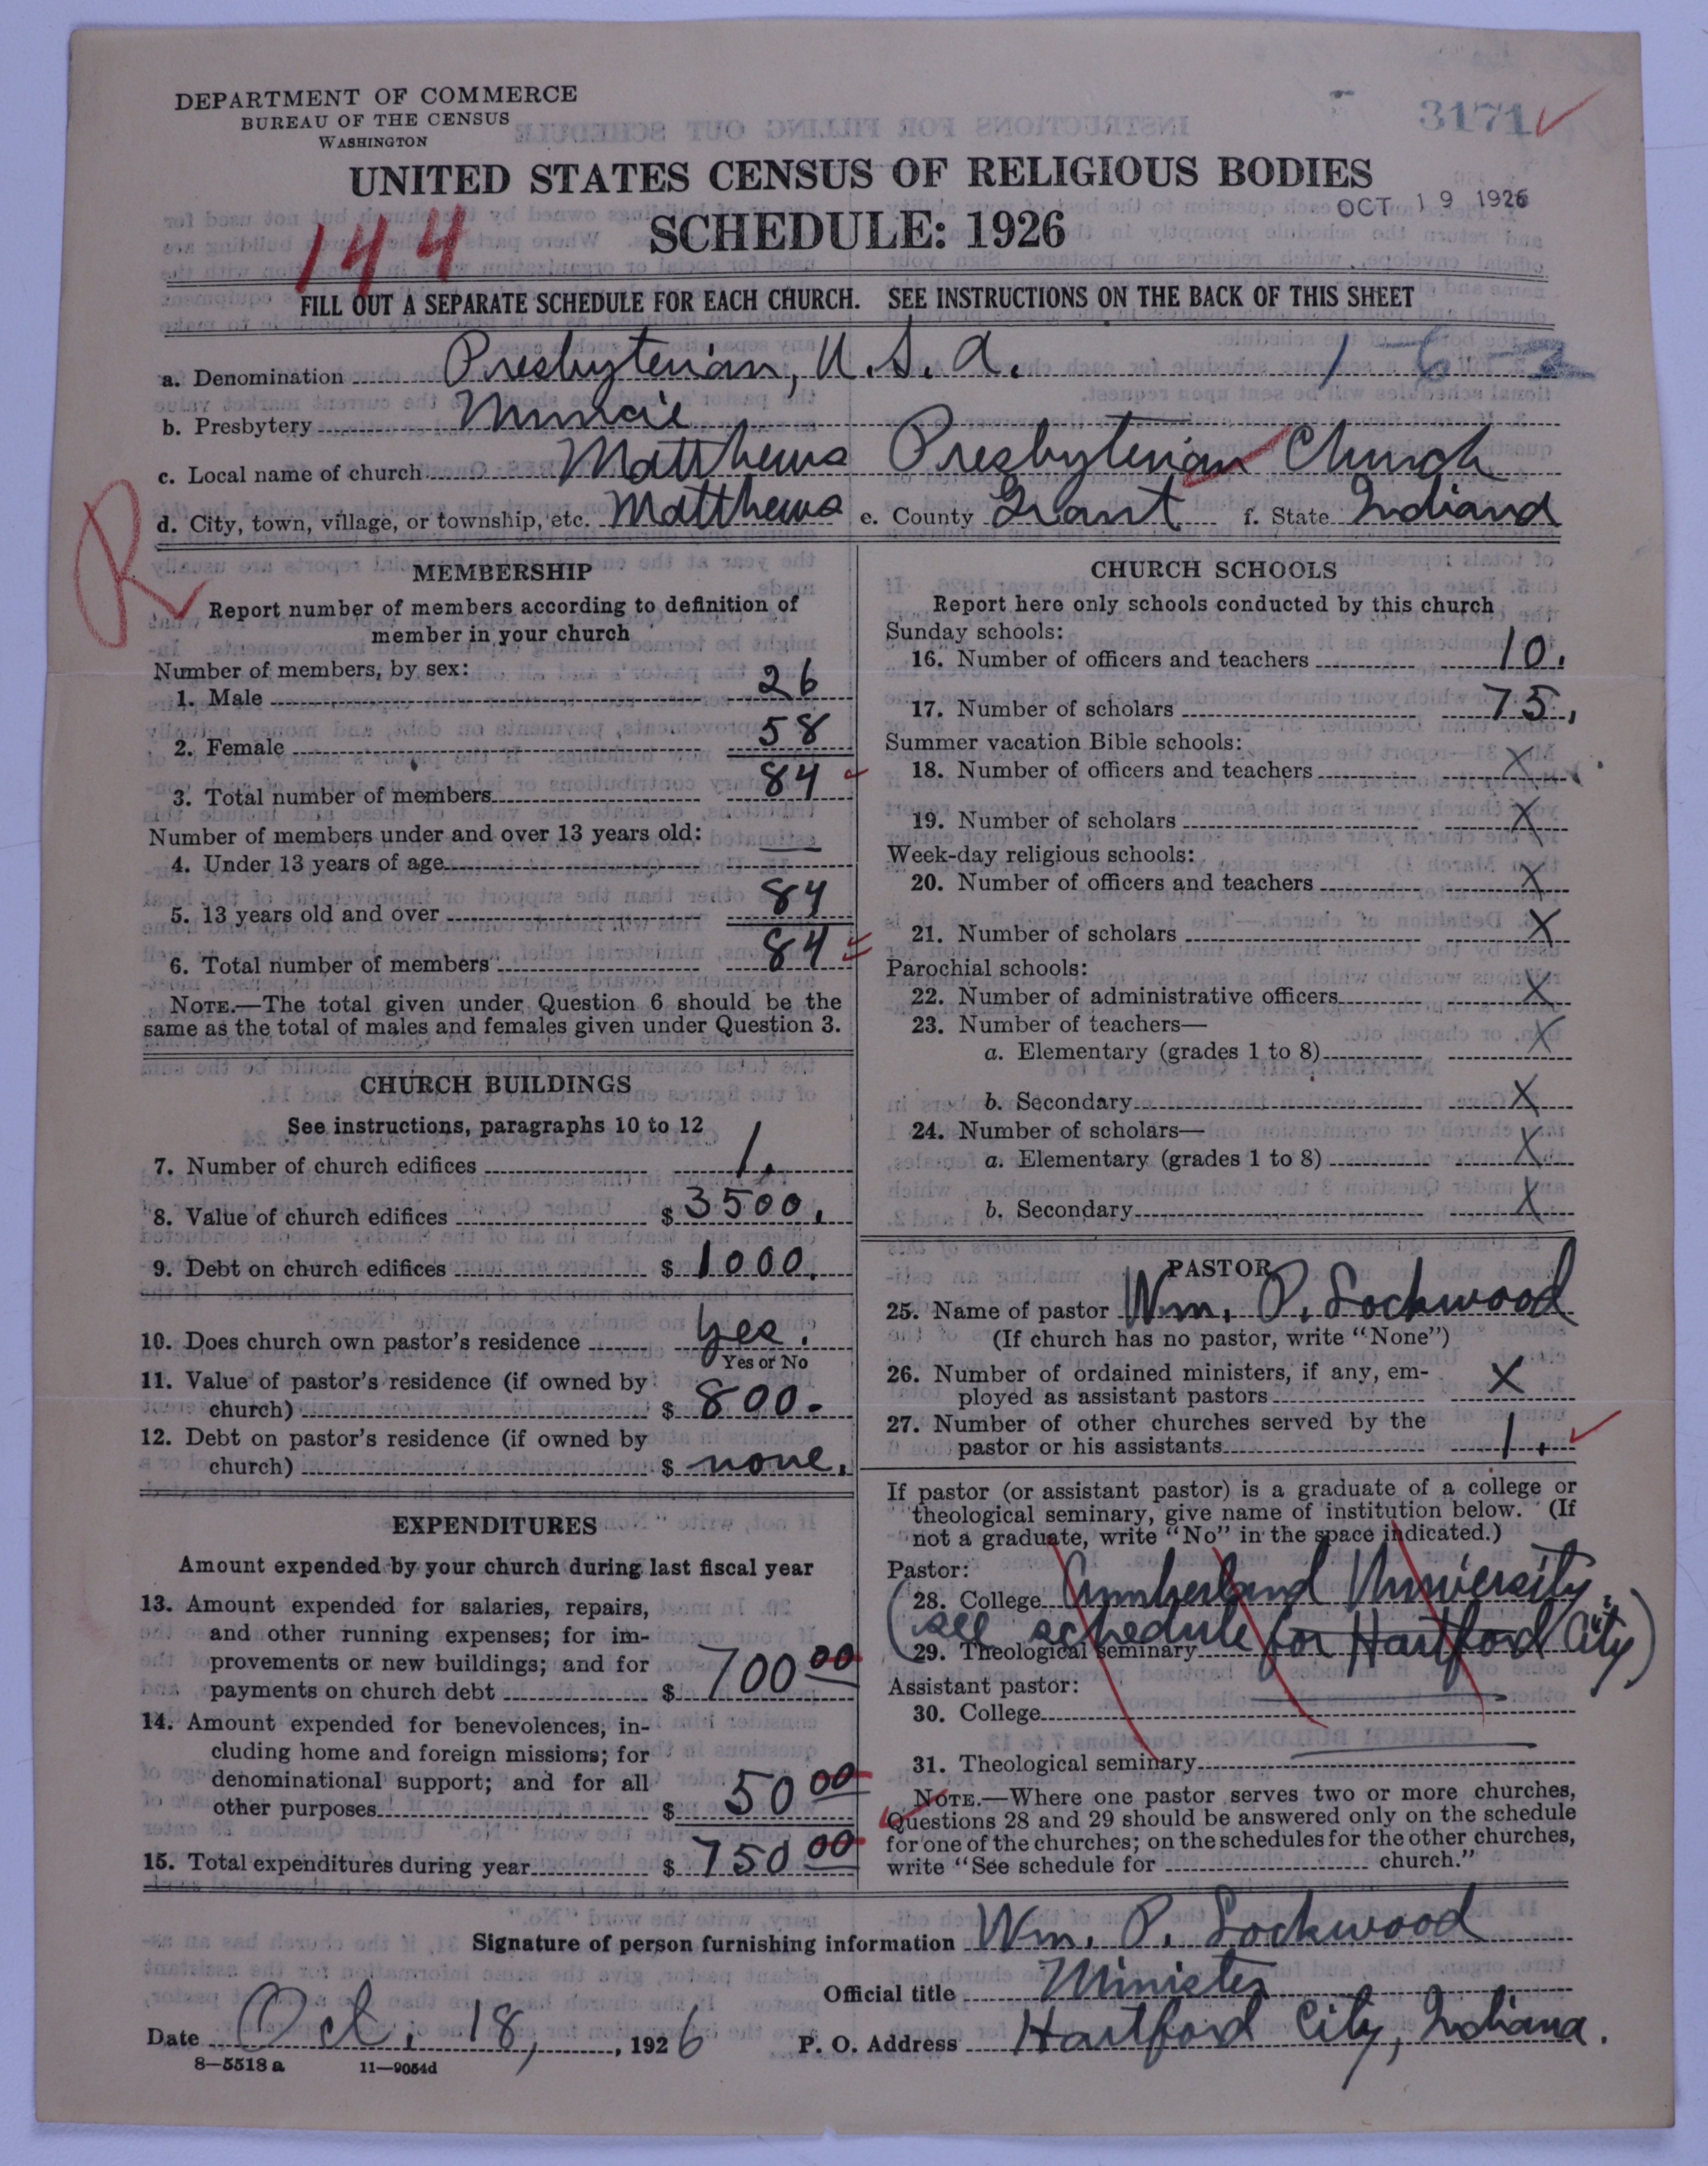 DEPARTMENT OF COMMERCE
BUREAU OF THE CENSUS
WASHINGTON
3171
UNITED STATES CENSUS OF RELIGIOUS BODIES
SCHEDULE: 1926
OCT 19 1926
144
FILL OUT A SEPARATE SCHEDULE FOR EACH CHURCH. SEE INSTRUCTIONS ON THE BACK OF THIS SHEET
a. Denomination Presbyterian, U.S.A. 1-6-2
b. Presbytery Muncie
c. Local name of church Matthews Presbyterian Church
d. City, town, village, or township, etc. Matthews e. County Grant f. State Indiana
R
MEMBERSHIP
Report number of members according to definition of
member in your church
Number of members, by sex:
1. Male 26
2. Female 58
3. Total number of members 84
Number of members under and over 13 years old:
4. Under 13 years of age —
5. 13 years old and over 84
6. Total number of members 84
NOTE.—The total given under Question 6 should be the
same as the total of males and females given under Question 3.
CHURCH BUILDINGS
See instructions, paragraphs 10 to 12
7. Number of church edifices 1.
8. Value of church edifices $ 3500.
9. Debt on church edifices $ 1000.
10. Does church own pastor's residence Yes.
Yes or No
11. Value of pastor's residence (if owned by
church) $ 800.
12. Debt on pastor's residence (if owned by
church) $ none.
EXPENDITURES
Amount expended by your church during last fiscal year
13. Amount expended for salaries, repairs,
and other running expenses; for im-
provements or new buildings; and for
payments on church debt $ 700 00
14. Amount expended for benevolences, in-
cluding home and foreign missions; for
denominational support; and for all
other purposes $ 50 00
15. Total expenditures during year $ 750 00
CHURCH SCHOOLS
Report here only schools conducted by this church
Sunday schools:
16. Number of officers and teachers 10.
17. Number of scholars 75.
Summer vacation Bible schools:
18. Number of officers and teachers X
19. Number of scholars X
Week-day religious schools:
20. Number of officers and teachers X
21. Number of scholars X
Parochial schools:
22. Number of administrative officers X
23. Number of teachers—
a. Elementary (grades 1 to 8) X
b. Secondary X
24. Number of scholars—
a. Elementary (grades 1 to 8) X
b. Secondary X
PASTOR
25. Name of pastor Wm. P. Lockwood
(If church has no pastor, write "None")
26. Number of ordained ministers, if any, em-
ployed as assistant pastors X
27. Number of other churches served by the
pastor or his assistants 1.
If pastor (or assistant pastor) is a graduate of a college or
theological seminary, give name of institution below. (If
not a graduate, write "No" in the space indicated.)
Pastor:
28. College Cumberland University.
(See schedule for Hartford City)
29. Theological seminary
Assistant pastor:
30. College
31. Theological seminary
NOTE.—Where one pastor serves two or more churches,
Questions 28 and 29 should be answered only on the schedule
for one of the churches; on the schedules for the other churches,
write "See schedule for church."
Signature of person furnishing information Wm. P. Lockwood
Official title Minister
Date Oct. 18, 1926 P. O. Address Hartford City, Indiana.
8—5518 a 11—9054d